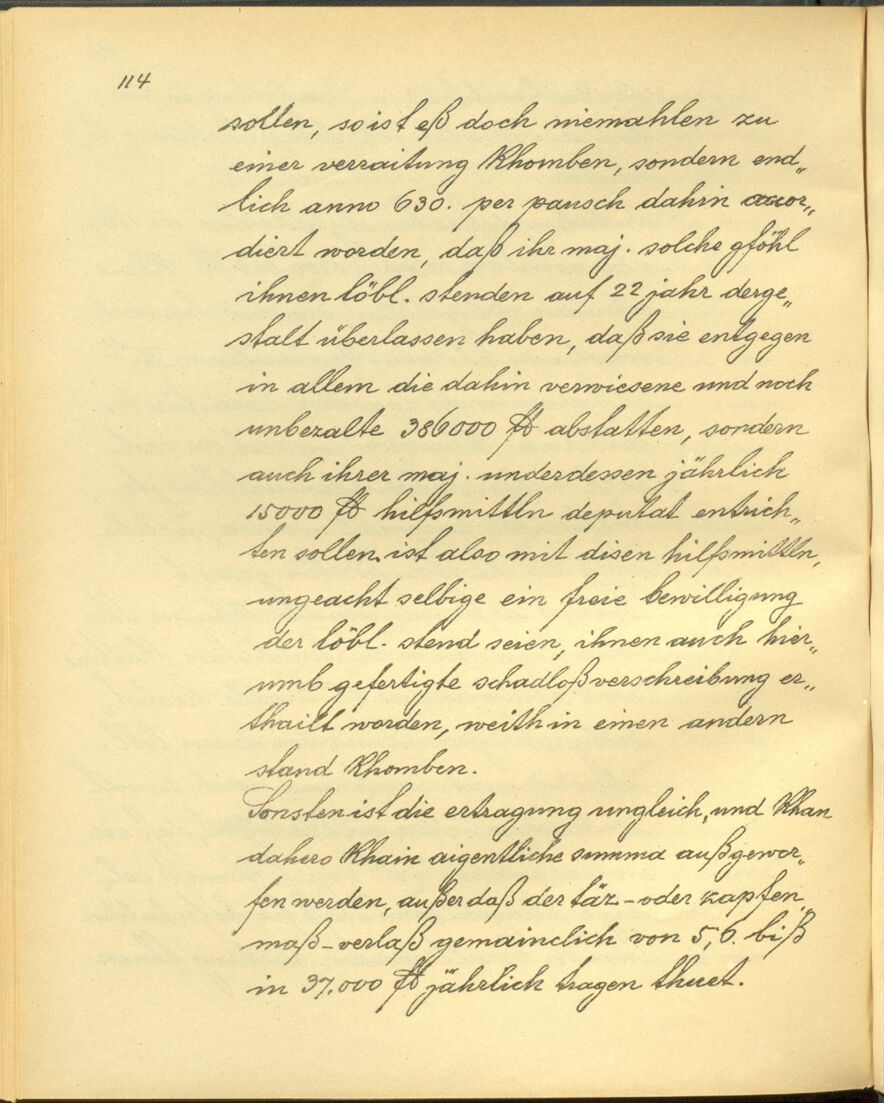 114
sollen, so ist eß doch niemahlen zu
einer verraitung khomben, sondern end„
lich anno 630. per pausch dahin accor„
diert worden, daß ihr maj. solche gföhl
ihnen löbl. stenden auf 22 jahr derge„
stalt überlassen haben, daß sie entgegen
in allem die dahin verwiesene und noch
unbezalte 386000 fl abstatten, sondern
auch ihrer maj. underdessen jährlich
15000 fl hilfsmittln deputat entrich„
ten sollen, ist also mit disen hilfsmittln,
ungeacht selbige ein freie bewilligung
der löbl. stend seien, ihnen auch hier„
umb gefertigte schadloßverschreibung er„
thailt worden, weith in einen andern
stand khomben.
Sonsten ist die ertragung ungleich, und khan
dahero khain aigentliche summa außgewor„
fen werden, außer daß der täz- oder zapfen„
maß-verlaß gemainclich von 5, 6. biß
in 37.000 fl jährlich tragen thuet.